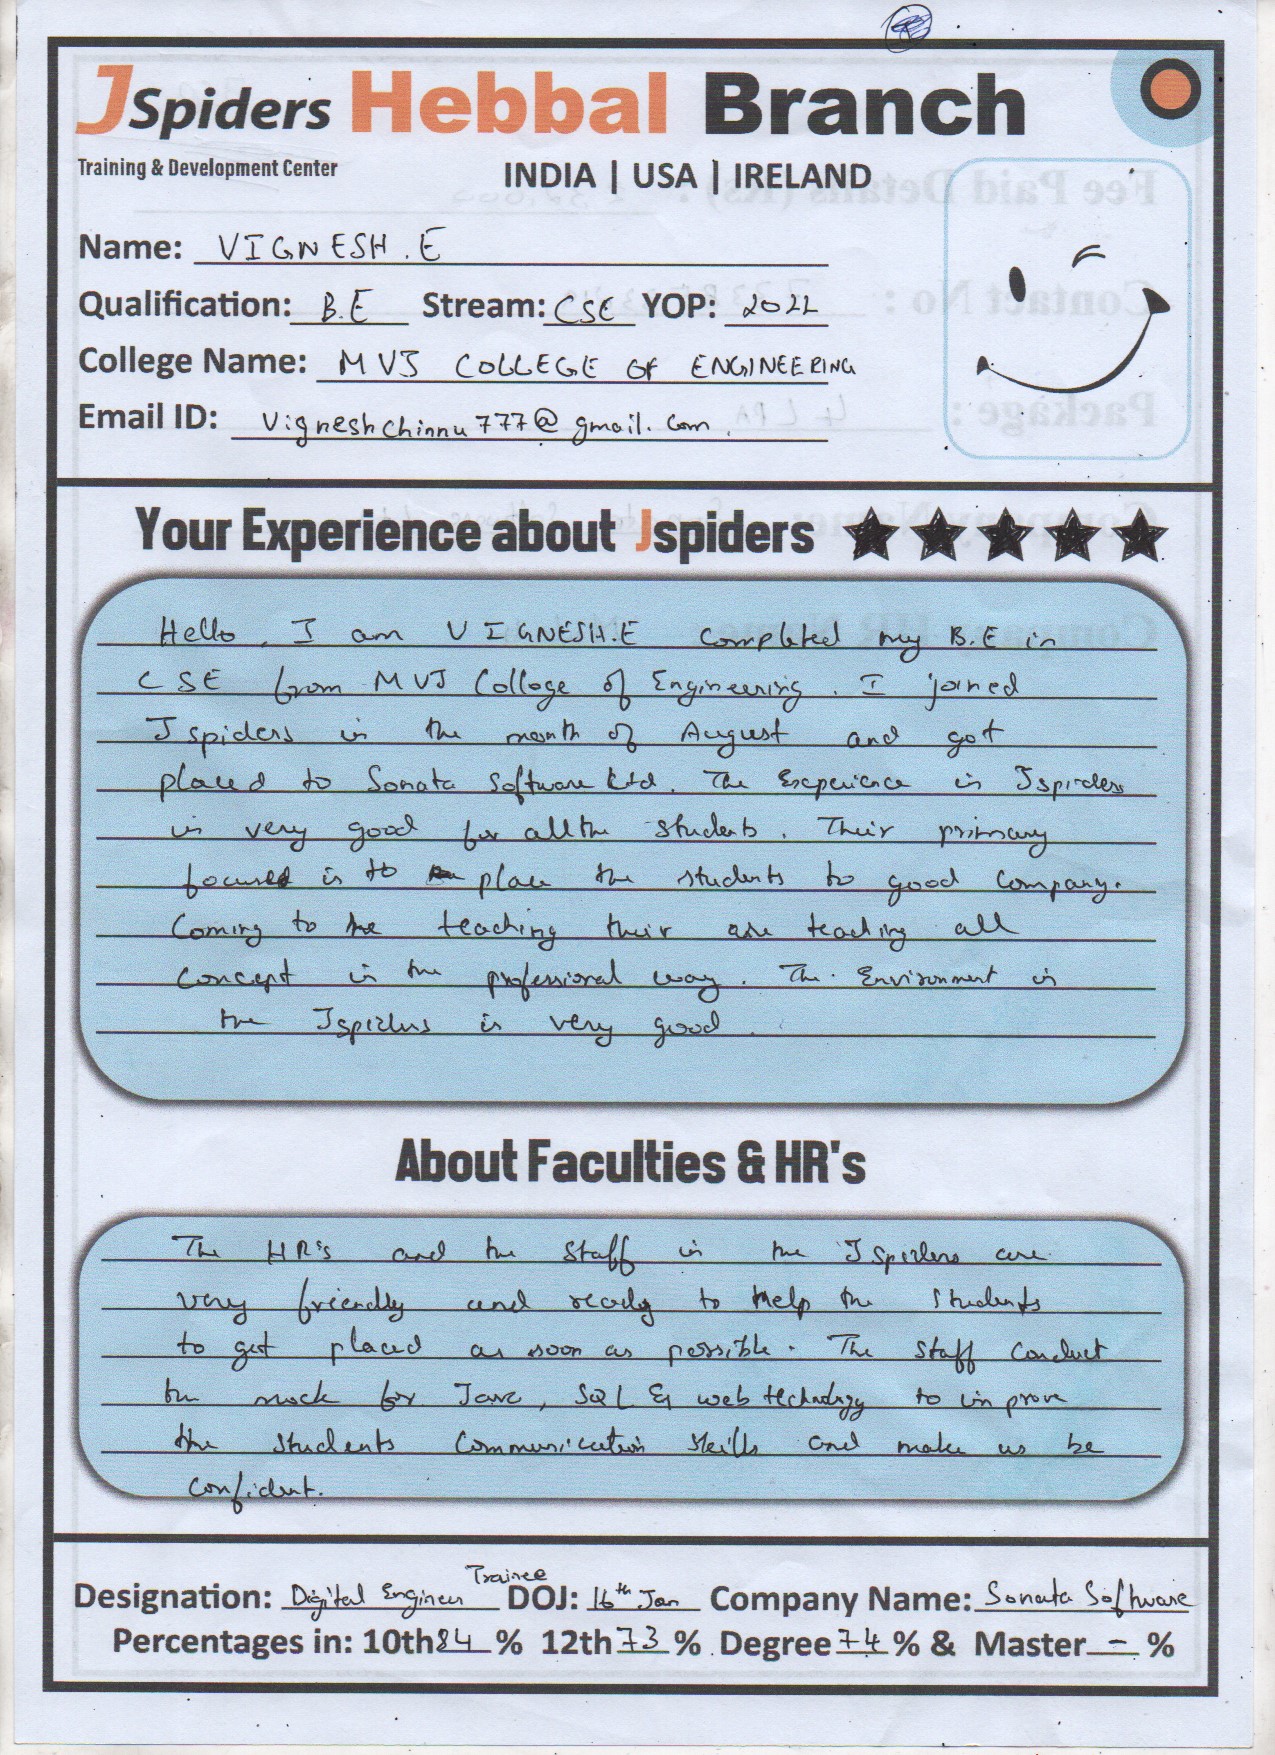 JSpiders Hebbal Branch
Training & Development Center
INDIA | USA | IRELAND
Name: VIGNESH.E
Qualification: B.E Stream: CSE YOP: 2022
College Name: MVJ COLLEGE OF ENGINEERING
Email ID: Vigneshchinnu777@gmail.com.
Your Experience about Jspiders
Hello, I am VIGNESH.E completed my B.E in
CSE from MVJ College of Engineering. I joined
Jspiders in the month of August and got
placed to Sonata Software Ltd. The Experience in Jspiders
is very good for all the students. Their primary
focused is to place the students to good company.
Coming to the teaching their are teaching all
concept in the professional way. The Environment in
the Jspiders is very good.
About Faculties & HR's
The HR's and the staff in the Jspiders are
very friendly and ready to help the students
to get placed as soon as possible. The staff conduct
the mock for Java, SQL & web technology to improve
the students Communication skills and make us be
confident.
Trainee
Designation: Digital Engineer DOJ: 16th Jan Company Name: Sonata Software
Percentages in: 10th 84 % 12th 73 % Degree 74 % & Master - %